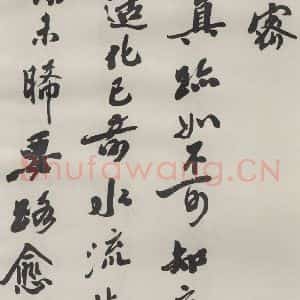 密
真跡如不可知
造化已奇水流
未晞要路愈
Shufawang.CN